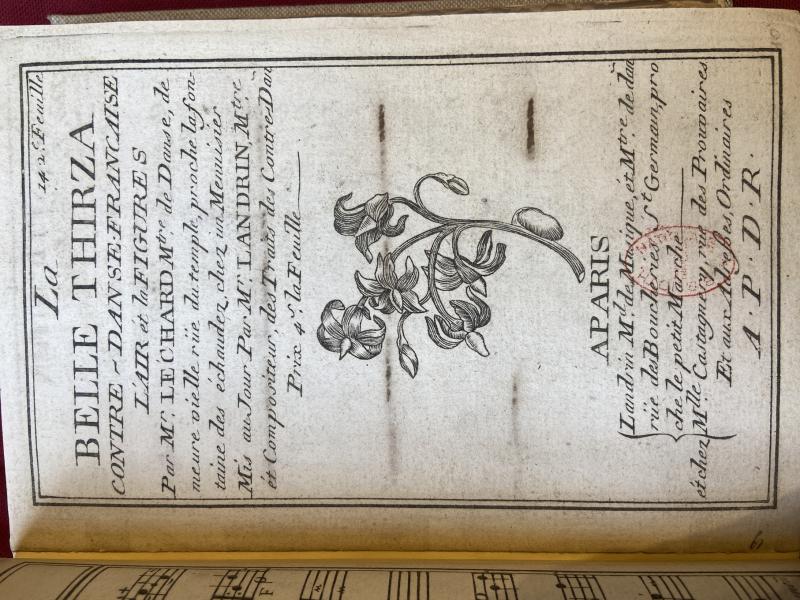 142.e Feuille
La
BELLE THIRZA
CONTRE-DANSE-FRANCAISE
L'AIR et la FIGURES
Par Mr. LECHARD Mtre. de Danse, de
meure vielle rüe du temple, proche la fon-
taine des échaudez, chez un Menuisier
Mis au Jour Par Mr. LANDRIN, Mtre
ét Compositeur, des Traits des Contre-Dan
Prix 4 s. la Feuille
APARIS
Landrin Md. de Musique, ét Mtre de dan
rüe des Boucheries St Germain, pro
che le petit Marché
ét chez Mlle Castagnery, rüe des Prouvaires
Et aux Adresses Ordinaires
A. P. D. R.